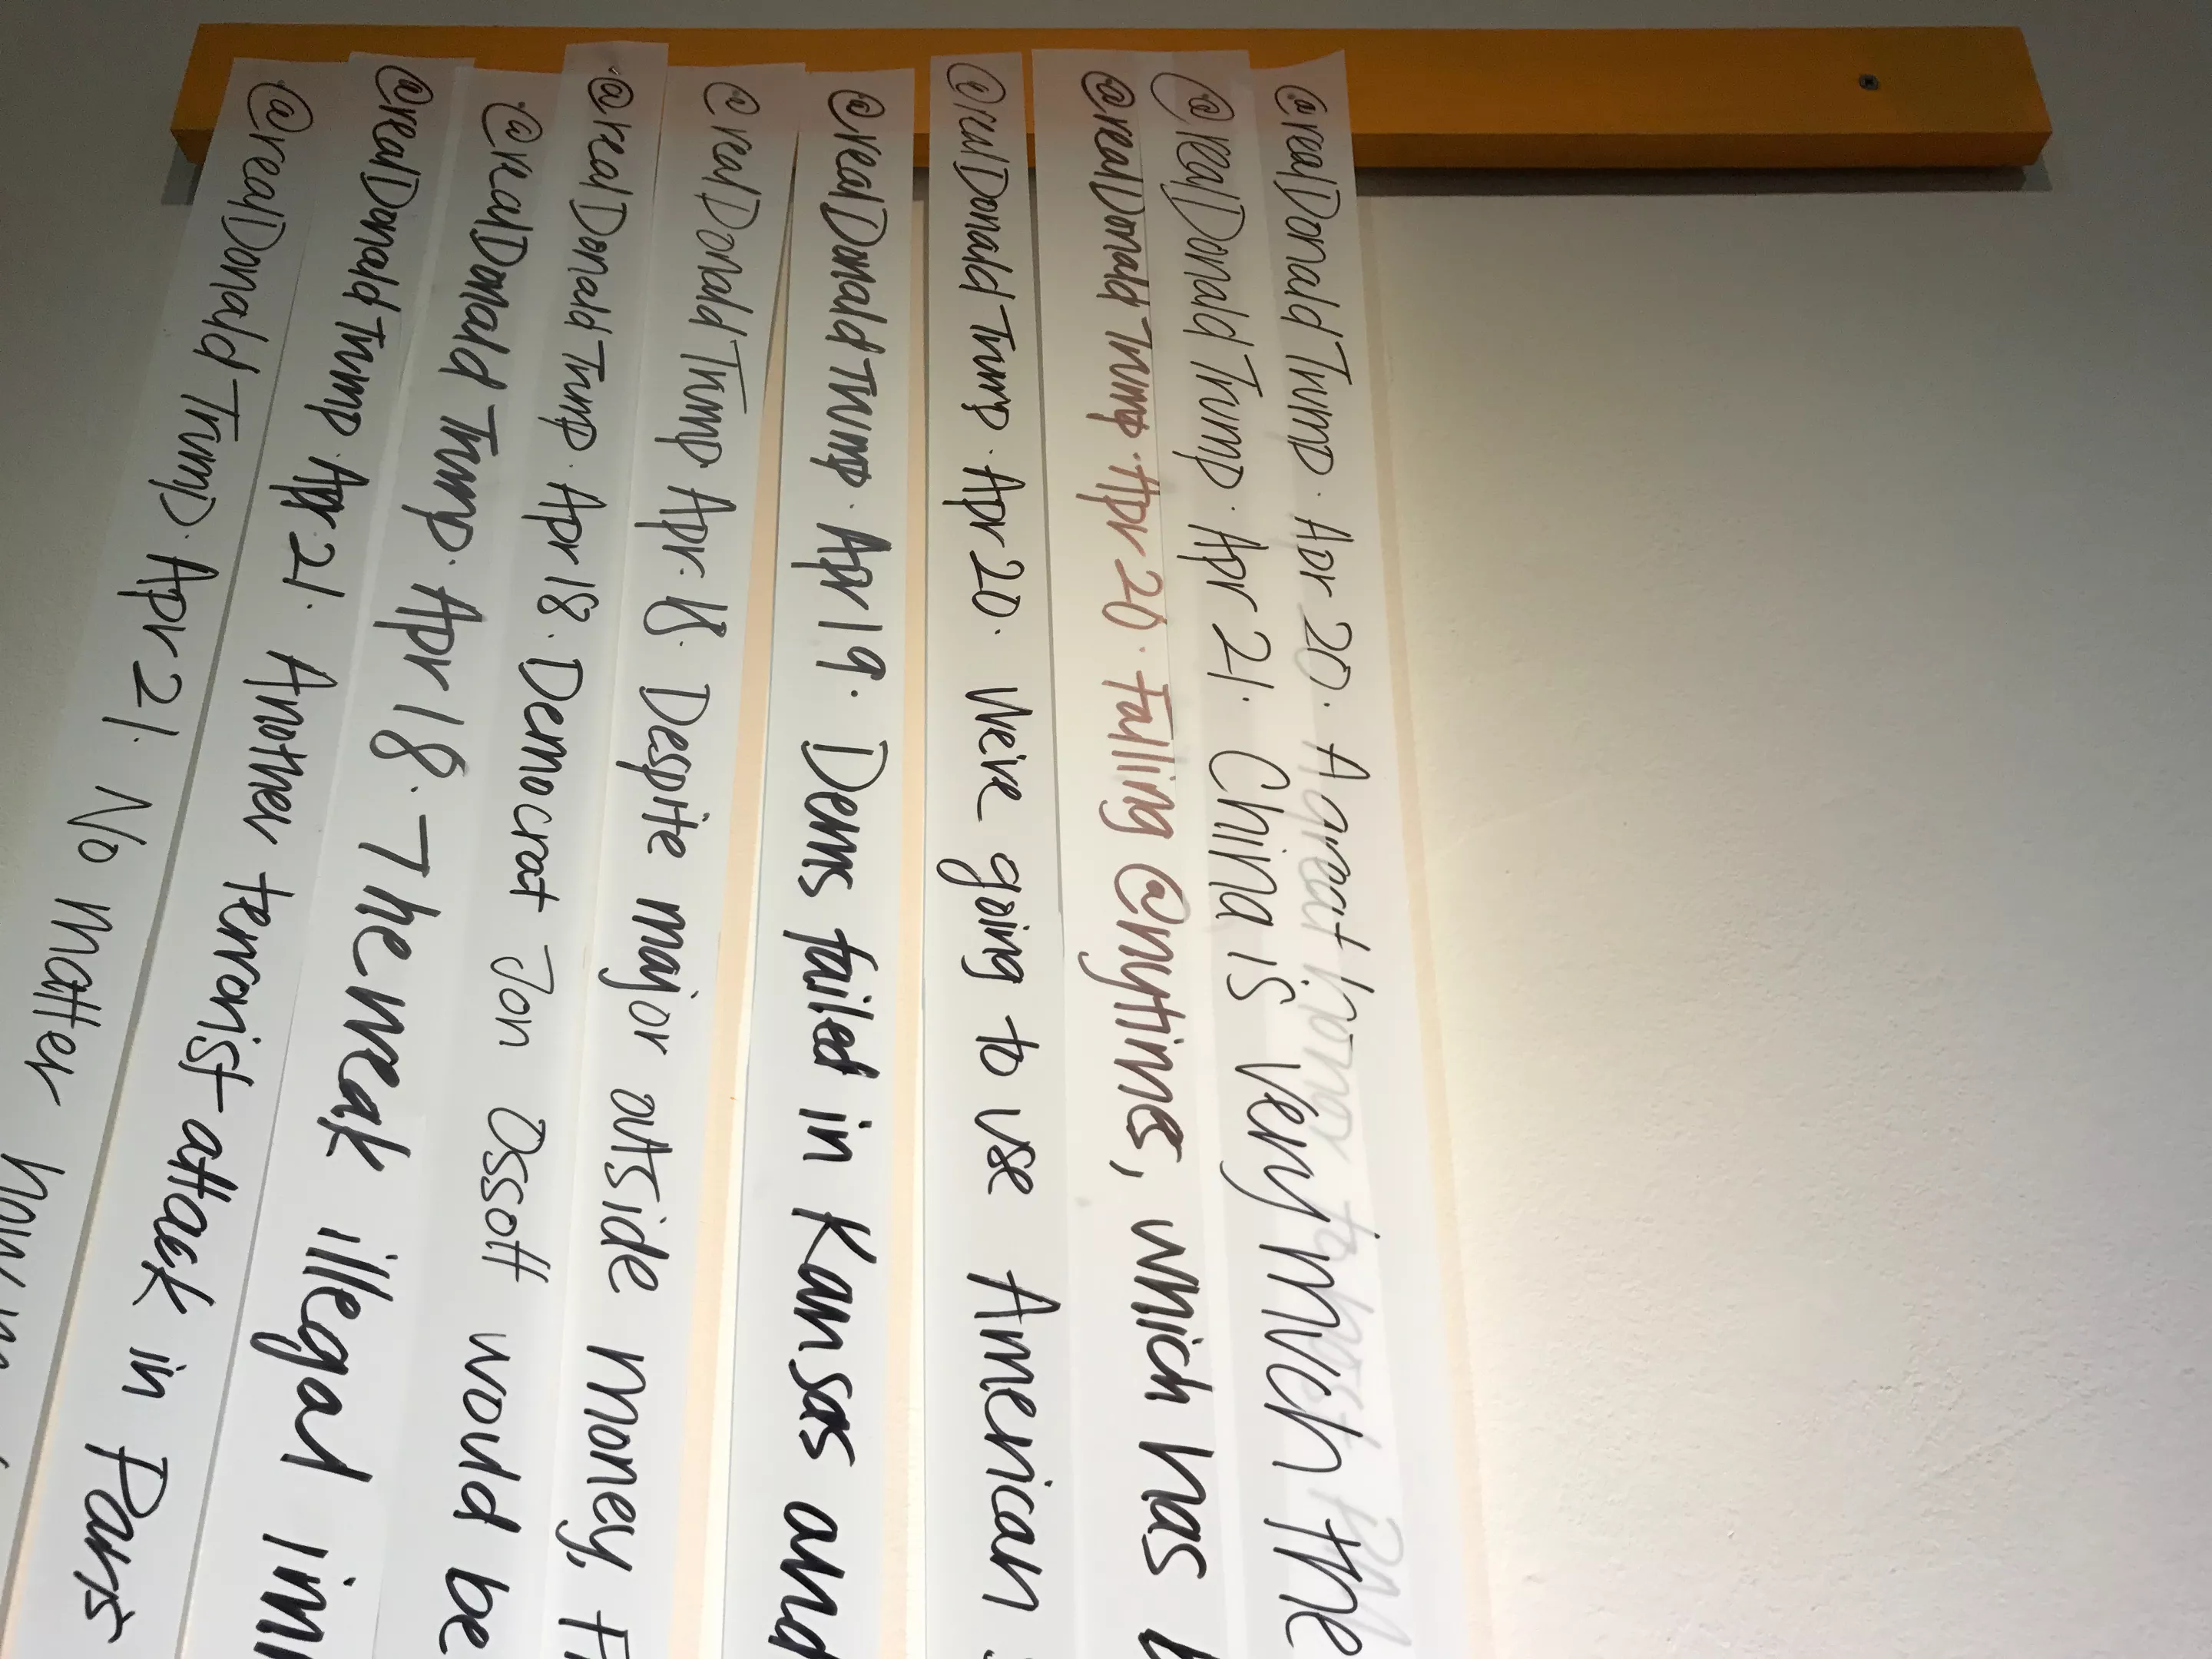 @realDonaldTrump · Apr 21 · No matter
@realDonaldTrump · Apr 21 · Another terrorist attack in Paris
@realDonaldTrump · Apr 18 · The weak illegal
@realDonaldTrump · Apr 18 · Democrat Jon Ossoff would be
@realDonaldTrump Apr. 18 · Despite major outside money,
@realDonaldTrump · Apr 19 · Dems failed in Kansas and
@realDonaldTrump · Apr 20 · We're going to use American
@realDonaldTrump · Apr 20 · Failing @nytimes, which has
@realDonaldTrump · Apr 21 · China is very much the
@realDonaldTrump · Apr 20 · A great honor to host